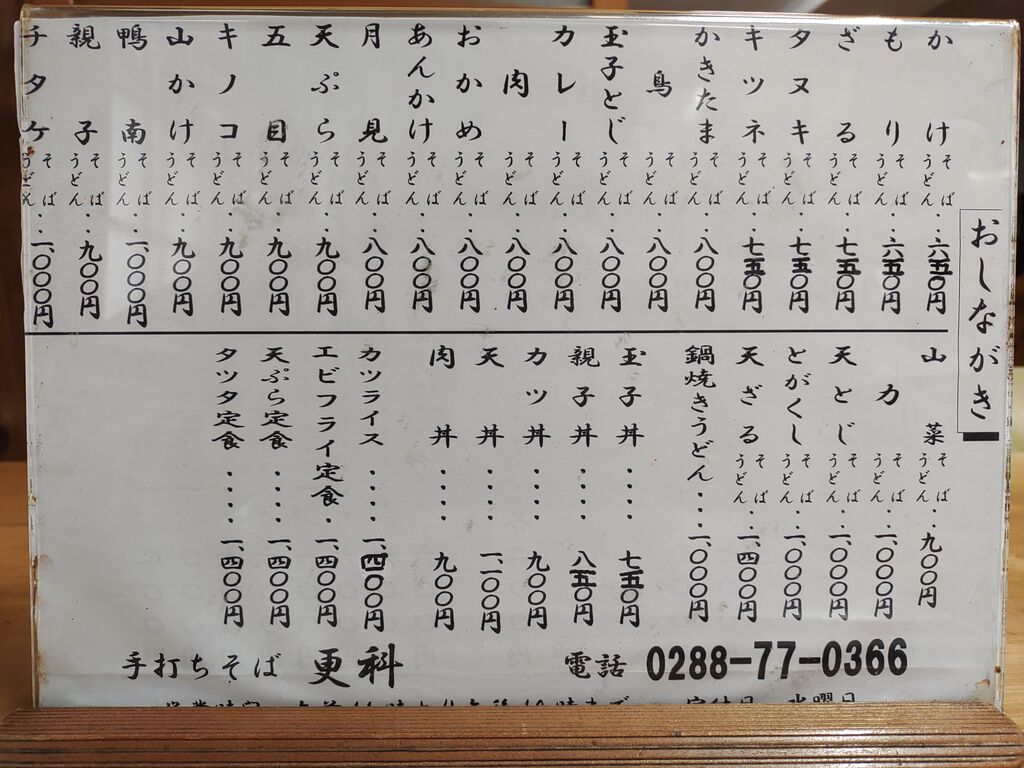 おしながき
かけ そば うどん・・六五〇円
もり そば うどん・・六五〇円
ざる そば うどん・・七五〇円
タヌキ そば うどん・・七五〇円
キツネ そば うどん・・七五〇円
かきたま そば うどん・・八〇〇円
鳥 そば うどん・・八〇〇円
玉子とじ そば うどん・・八〇〇円
カレー そば うどん・・八〇〇円
肉 そば うどん・・八〇〇円
おかめ そば うどん・・八〇〇円
あんかけ そば うどん・・八〇〇円
月見 そば うどん・・八〇〇円
天ぷら そば うどん・・九〇〇円
五目 そば うどん・・九〇〇円
キノコ そば うどん・・九〇〇円
山かけ そば うどん・・九〇〇円
鴨南 そば うどん・・一、〇〇〇円
親子 そば うどん・・九〇〇円
チタケ そば うどん・・一、〇〇〇円
山菜 そば うどん・・九〇〇円
力 そば うどん・・一、〇〇〇円
天とじ そば うどん・・一、〇〇〇円
とがくし そば うどん・・一、〇〇〇円
天ざる そば うどん・・一、四〇〇円
鍋焼きうどん・・・一、〇〇〇円
玉子丼・・・・七五〇円
親子丼・・・・八五〇円
カツ丼・・・・九〇〇円
天丼・・・・一、一〇〇円
肉丼・・・・九〇〇円
カツライス・・・・一、四〇〇円
エビフライ定食・・一、四〇〇円
天ぷら定食・・・・一、四〇〇円
タツタ定食・・・・一、四〇〇円
手打ちそば 更科 電話 0288-77-0366